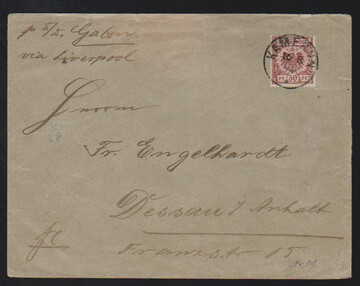 p S/S. Gabon
via Liverpool
KAMERUN
50
Herrn
Fr. Engelhardt
Dessau i/ Anhalt
Franzstr 15